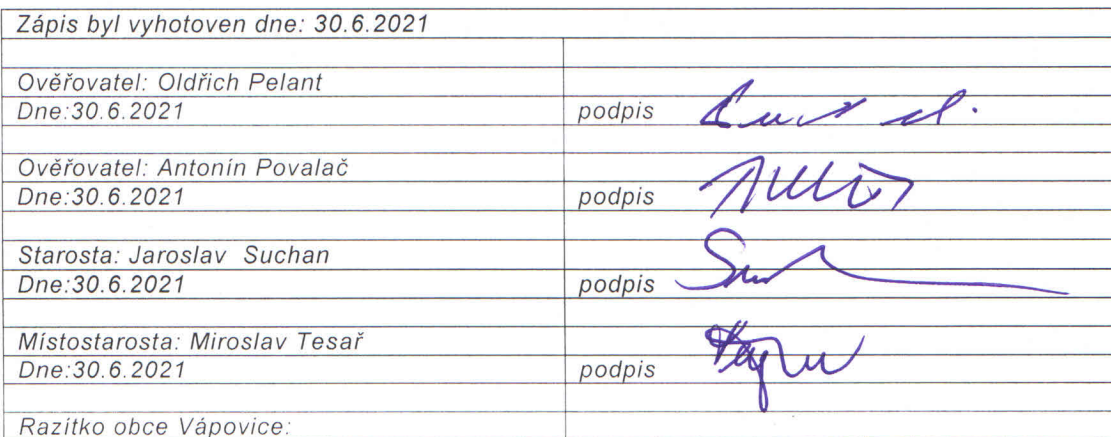 Zápis byl vyhotoven dne: 30.6.2021
Ověřovatel: Oldřich Pelant
Dne:30.6.2021 podpis
Ověřovatel: Antonín Povalač
Dne:30.6.2021 podpis
Starosta: Jaroslav Suchan
Dne:30.6.2021 podpis
Místostarosta: Miroslav Tesař
Dne:30.6.2021 podpis
Razítko obce Vápovice: